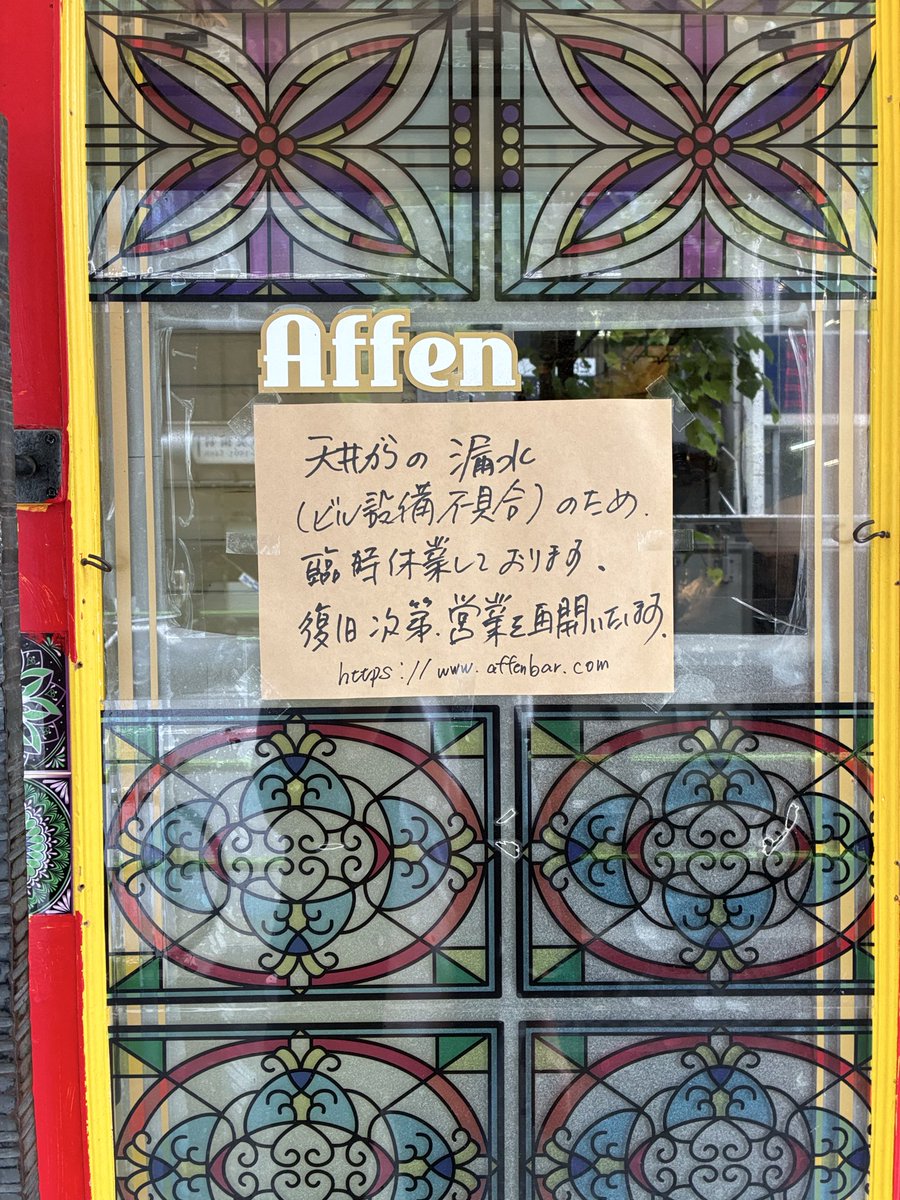 Affen
天井からの漏水
(ビル設備不具合)のため、
臨時休業しております。
復旧次第、営業を再開いたします。
https://www.affenbar.com